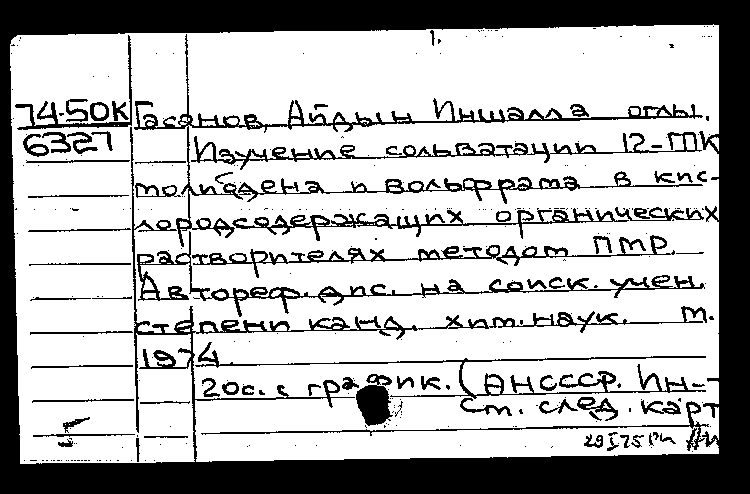 1.
74-50К Гасанов, Айдын Иншалла оглы.
6327 Изучение сольватации 12-ГПК
молибдена и вольфрама в кис-
лородсодержащих органических
растворителях методом ПМР.
Автореф. дис. на соиск. учен.
степени канд. хим. наук. М.
1974.
20с. с график. (АНСССР. Ин-т
см. след. карт
29 I 75